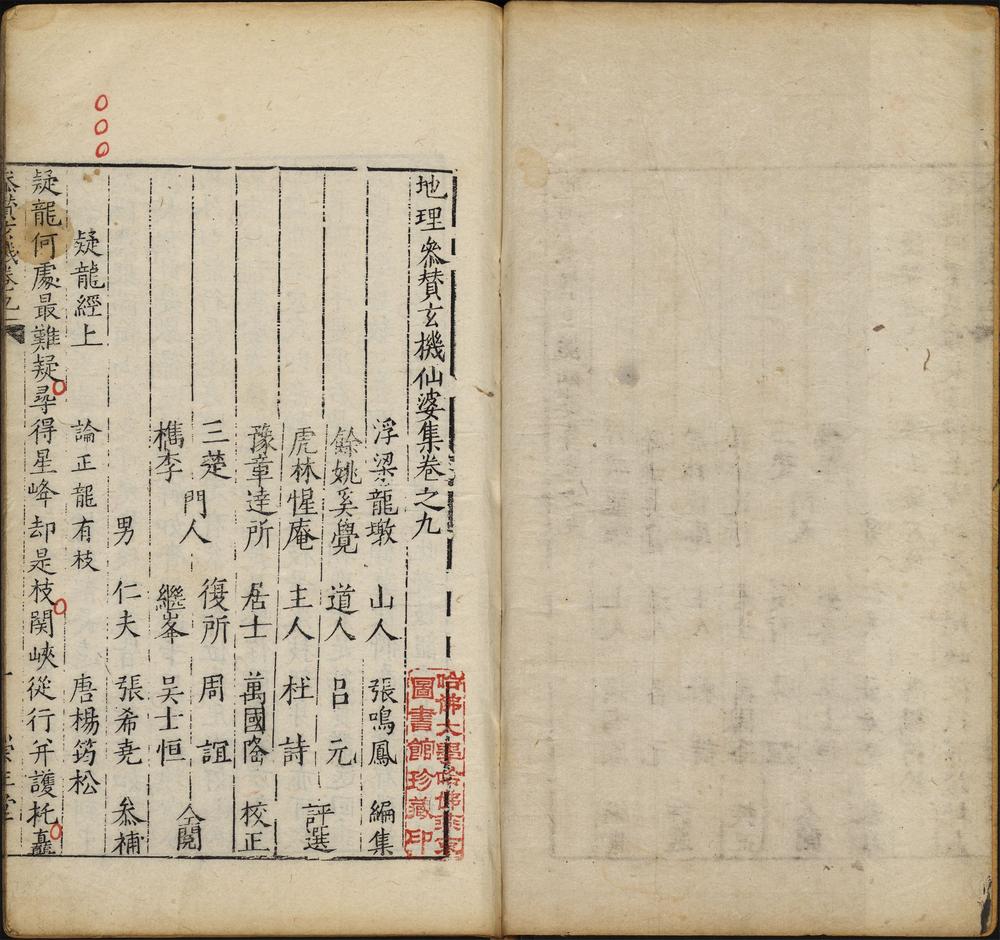 地理叅賛玄機仙婆集卷之九
浮梁龍墩 山人 張鳴鳳 編集
餘姚奚覺 道人 吕元 評選
虎林惺庵 主人 杜詩
豫章達所 居士 萬國隆 校正
三楚 門人 復所 周誼 仝閱
檇李 繼峯 吴士恒
男 仁夫 張希堯 叅補
疑龍經上 論正龍有枝 唐楊筠松
疑龍何處最難疑尋得星峰却是枝関峽從行并護托矗
叅賛玄機卷之九 一
哈佛大學哈佛燕京
圖書館珍藏印